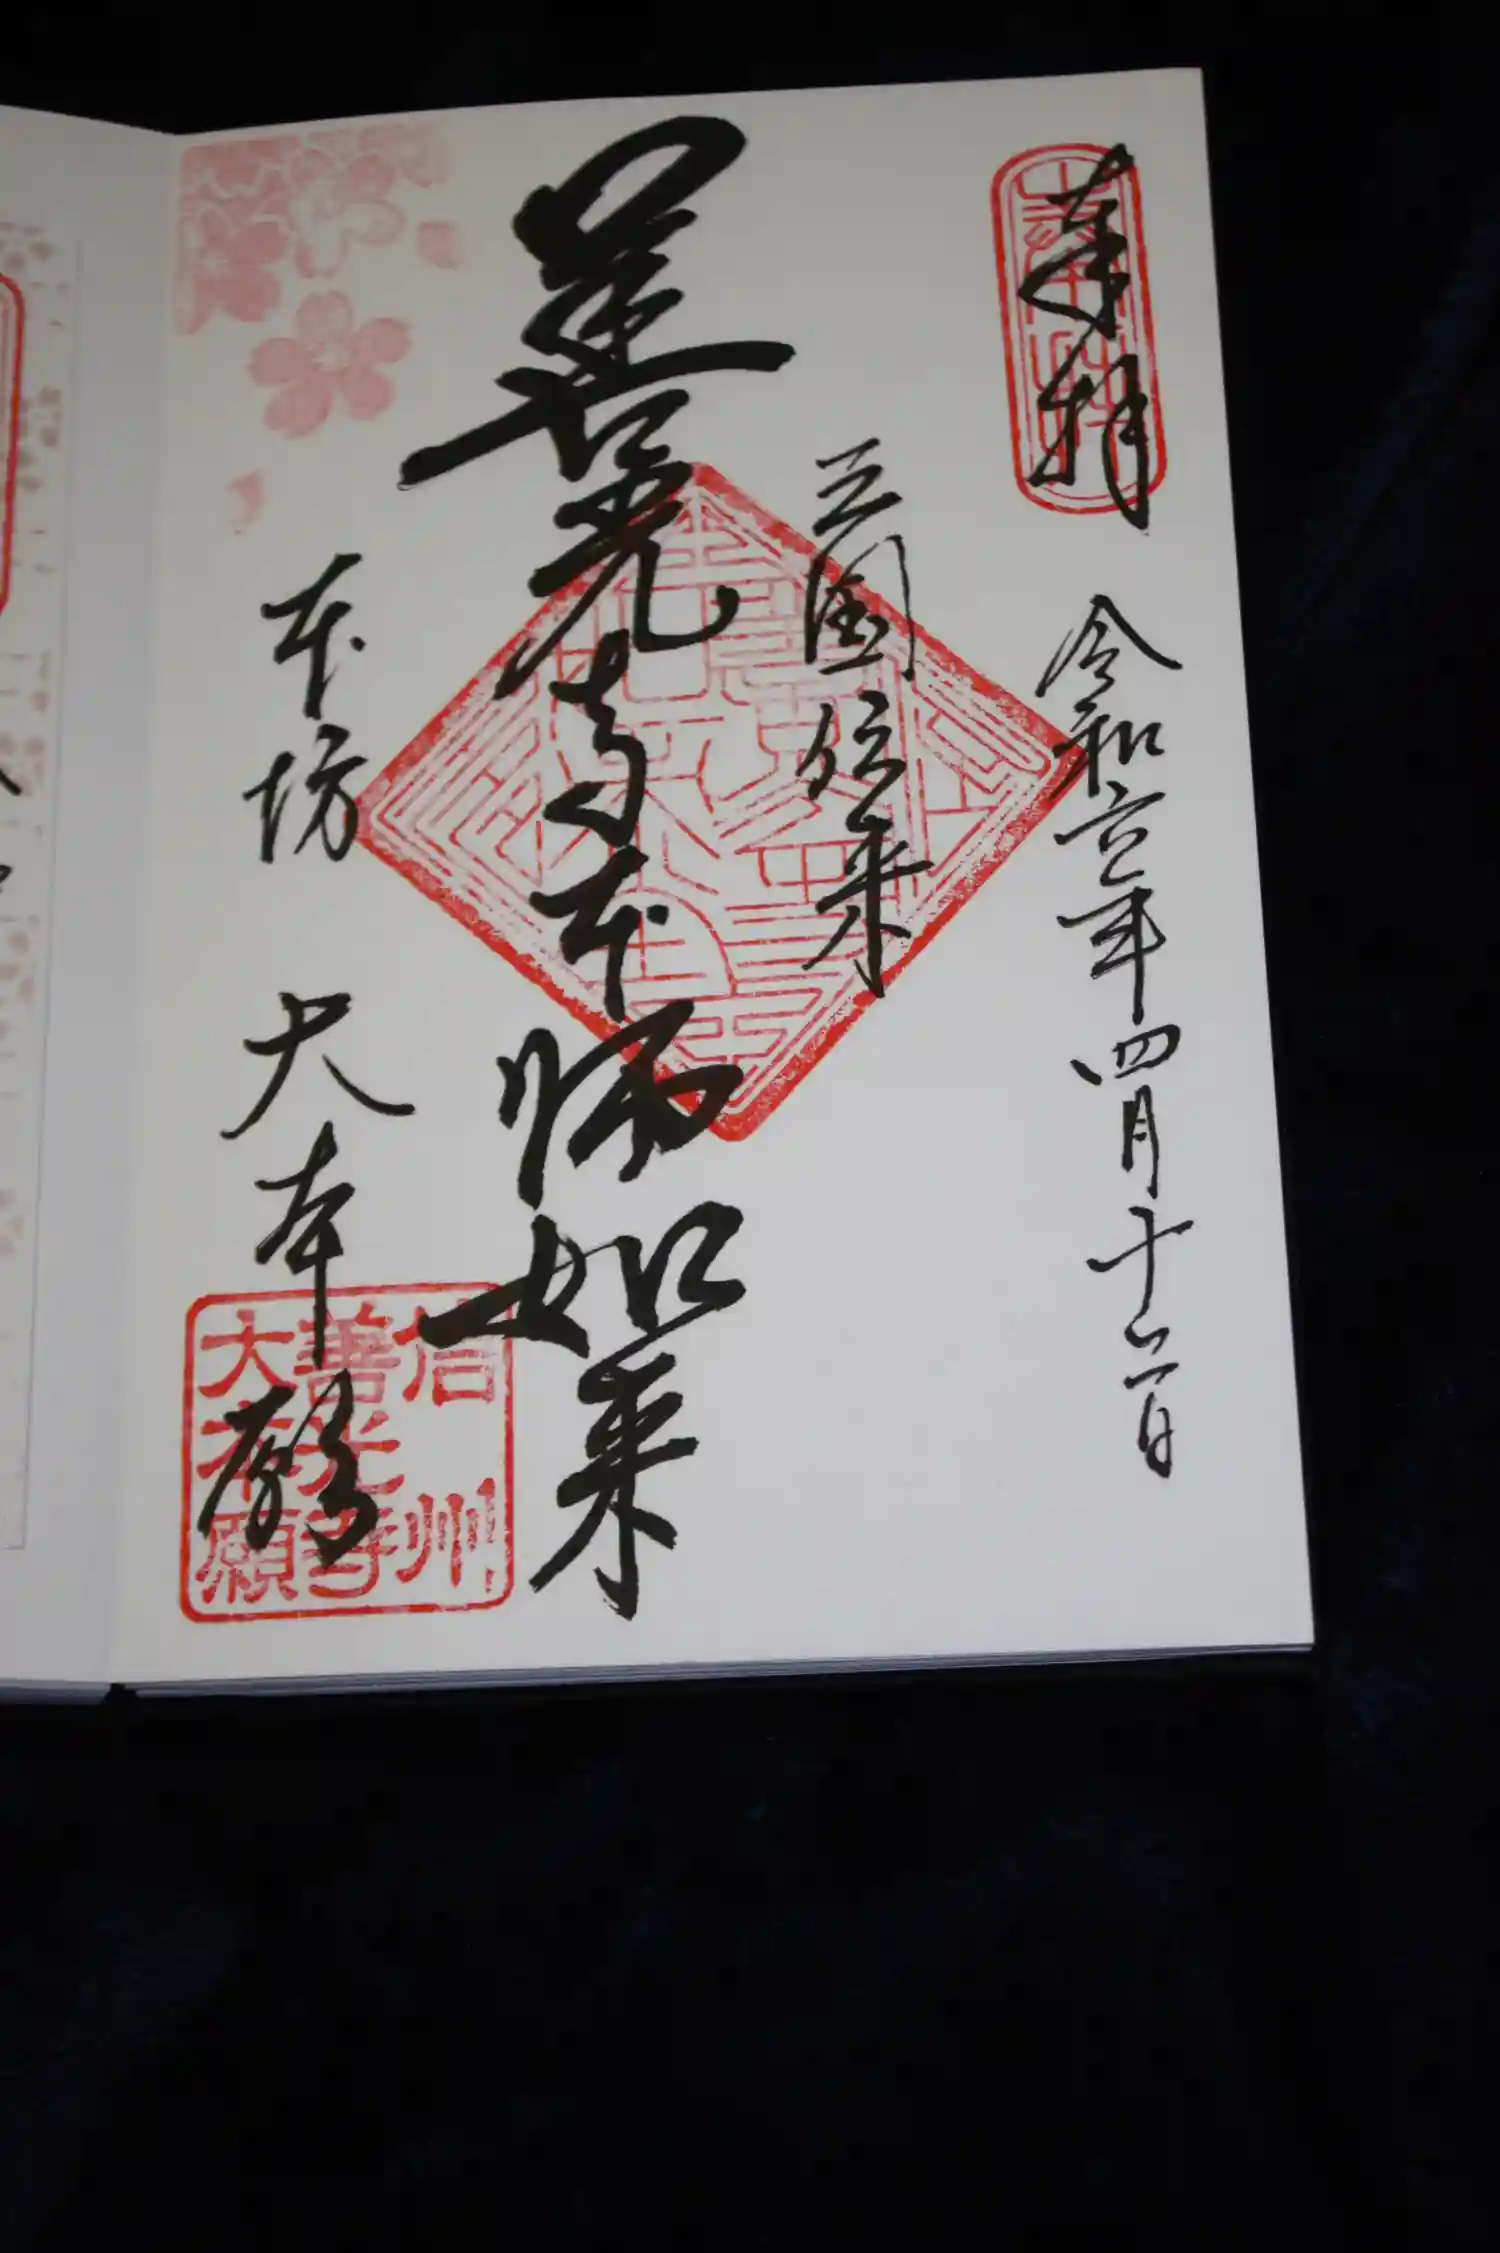 奉拝
令和六年四月
三国伝来
善光寺本師如来
本坊 大本願
信州
善光寺
大本願